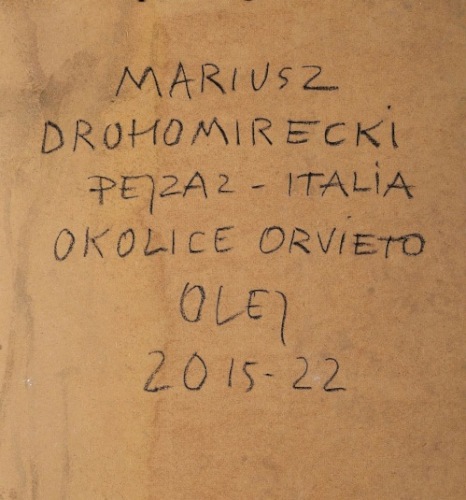 MARIUSZ
DROHOMIRECKI
PEJZAZ - ITALIA
OKOLICE ORVIETO
OLEJ
2015-22